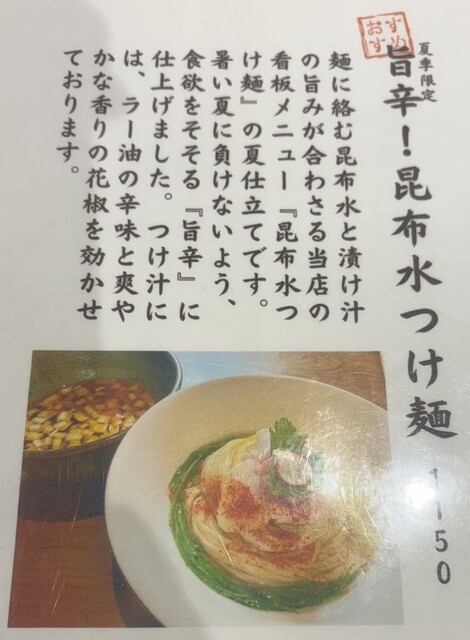 おすすめ
夏季限定
旨辛！昆布水つけ麺 1150
麺に絡む昆布水と漬け汁
の旨みが合わさる当店の
看板メニュー『昆布水つ
け麺』の夏仕立てです。
暑い夏に負けないよう、
食欲をそそる『旨辛』に
仕上げました。つけ汁に
は、ラー油の辛味と爽や
かな香りの花椒を効かせ
ております。